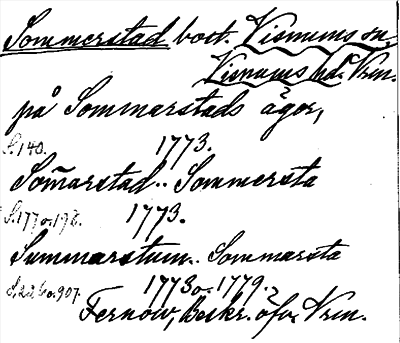 Sommerstad bost. Visnums sn,
Visnums hd. Vrm.
på Sommarstads ägor,
S. 140. 1773.
Som̄arstad.. Sommersta
S. 177 o. 178. 1773.
Summarstum.. Sommarsta
1773 o. 1779.
Fernow, Beskr. öfv. Vrm.